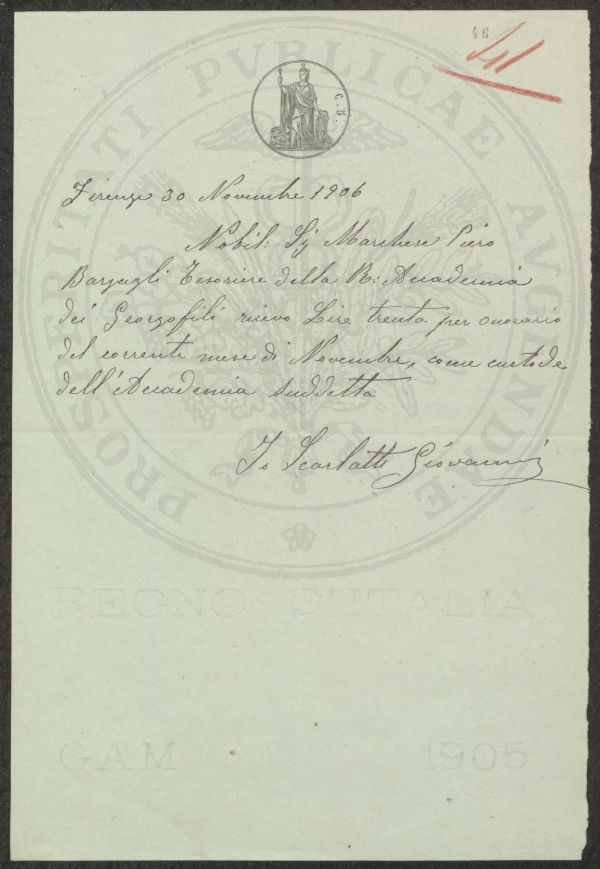 46
41
PROSPERITATI PVBLICAE AVGENDAE
C. 5.
Firenze 30 Novembre 1906
Nobil: Sig Marchese Piero
Bargagli Tesoriere della R: Accademia
dei Georgofili ricevo Lire trenta per onorario
del corrente mese di Novembre, come custode
dell'Accademia suddetta
Io Scarlatti Giovanni
REGNO D'ITALIA
GAM 1905